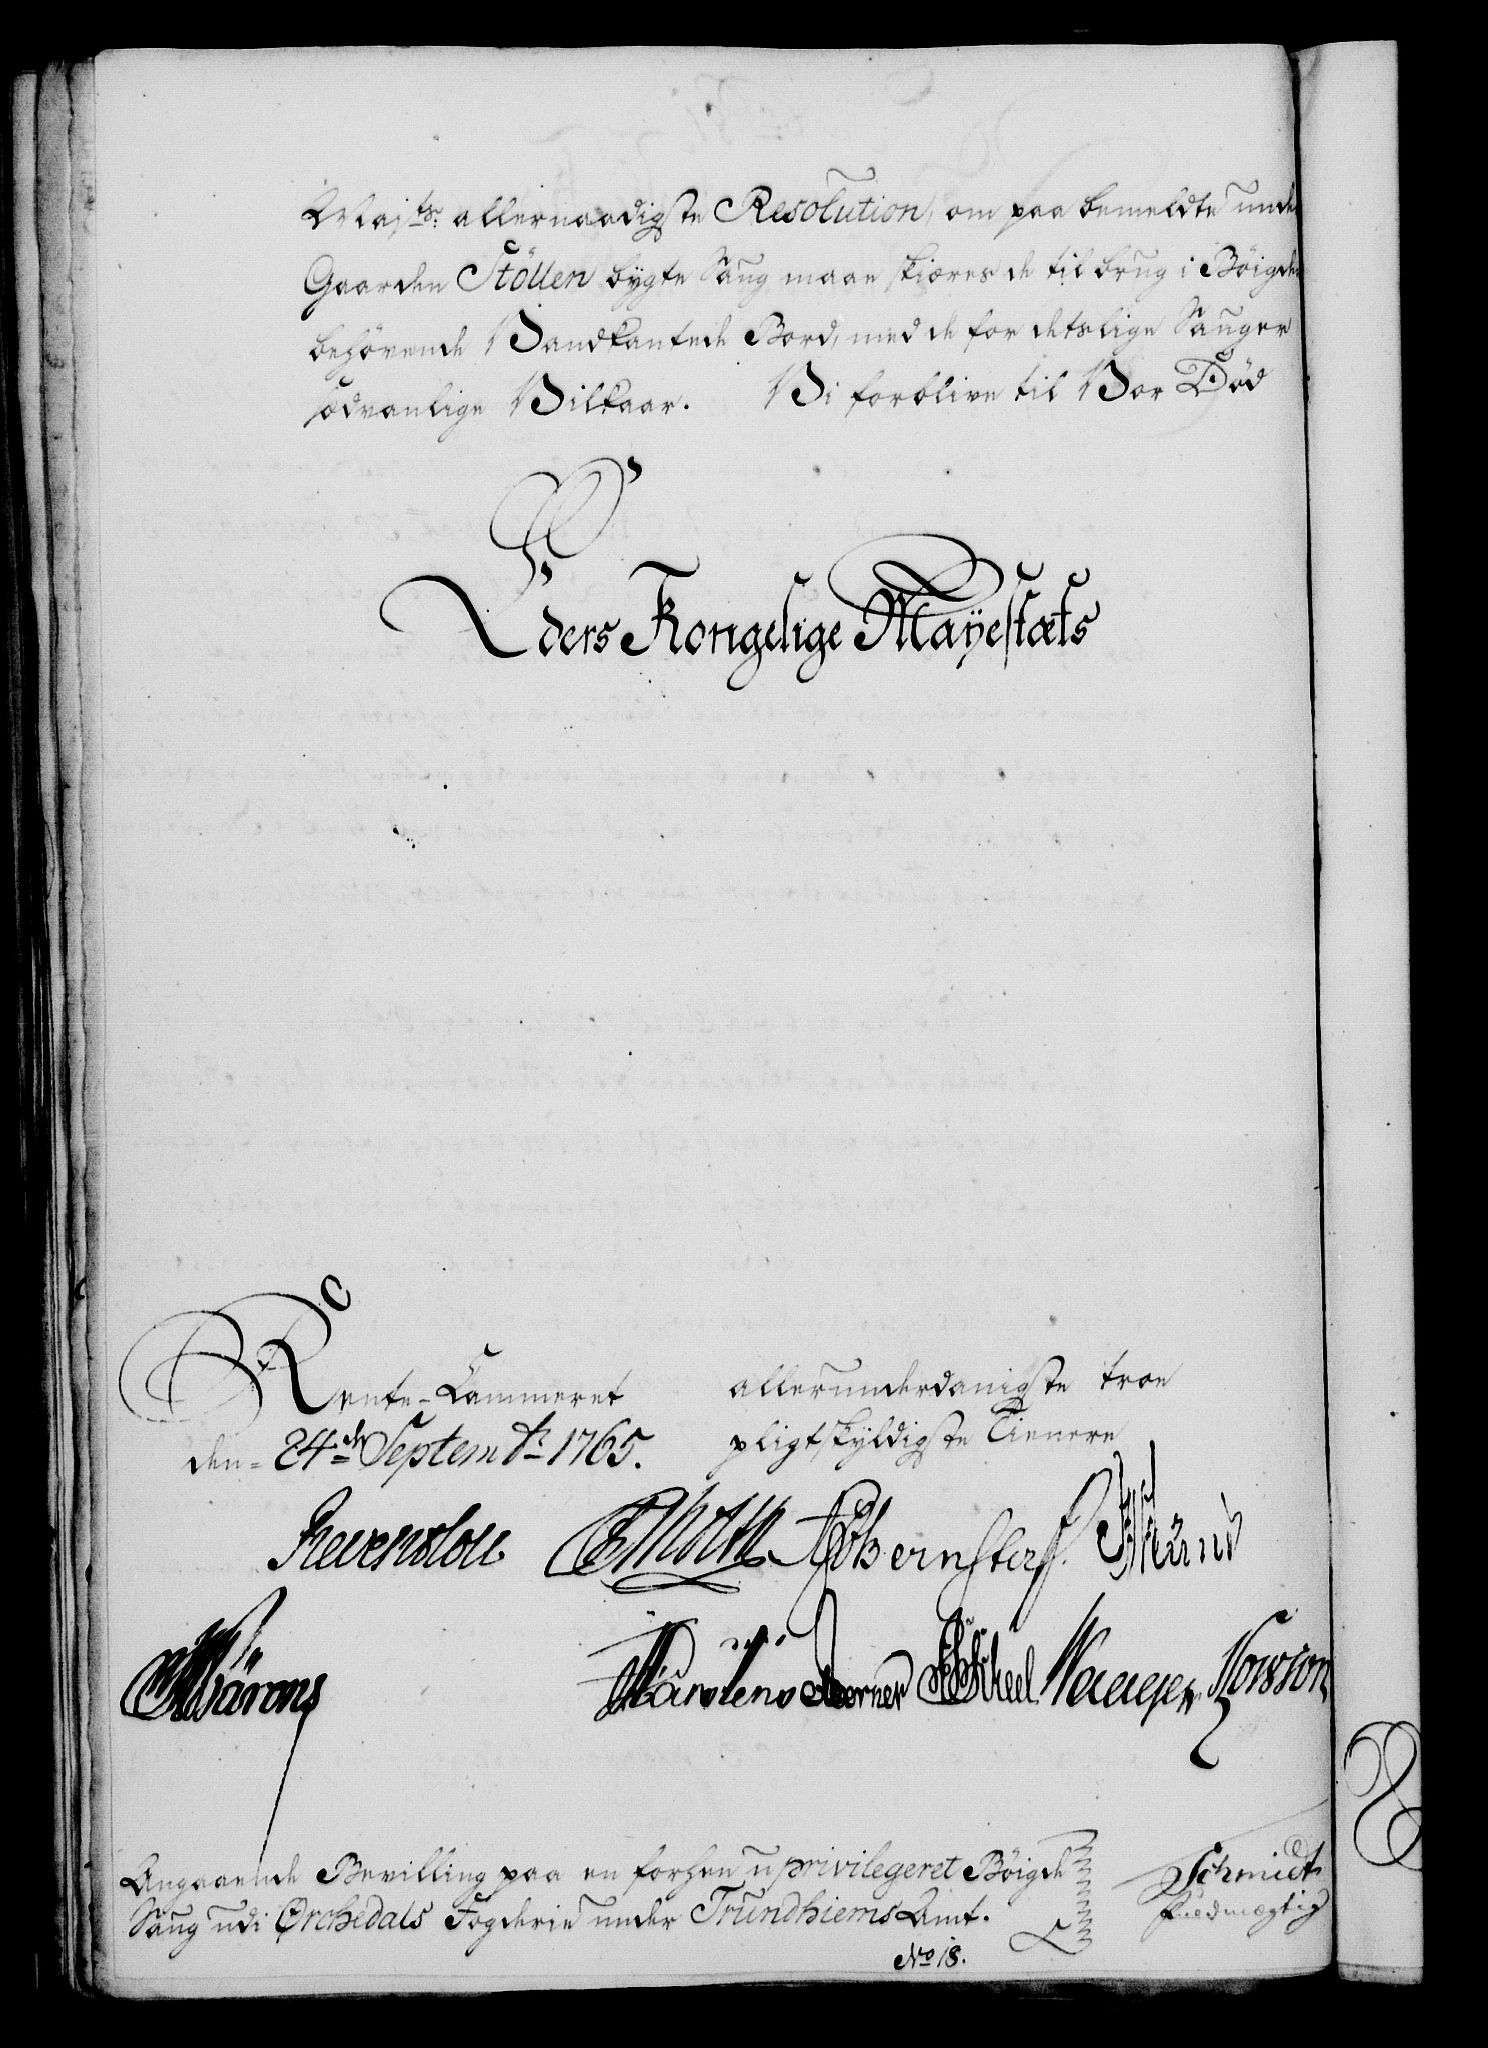 Majts. allernaadigste Resolution, om paa bemeldte unde
Gaarden Stöllen bygte Saug maae skiæres de til brug i Böigden
behövende Vandkantede Bord, med de for detslige Sauger
sædvanlige Vilkaar. Vi forblive til Vor Död
Eders Kongelige Mayestæts
Rente-Cammeret
den 24de Septembr 1765.
allerunderdanigste troe
pligtskyldigste Tienere
Reventlou ABernstorff.
Scheel
Angaaende Bevilling paa en forhen uprivilegeret Böigde
Saug udi Ørchedals Fogderie under Trundhiems Amt.
No 18.
Schmidt
Fuldmægtig